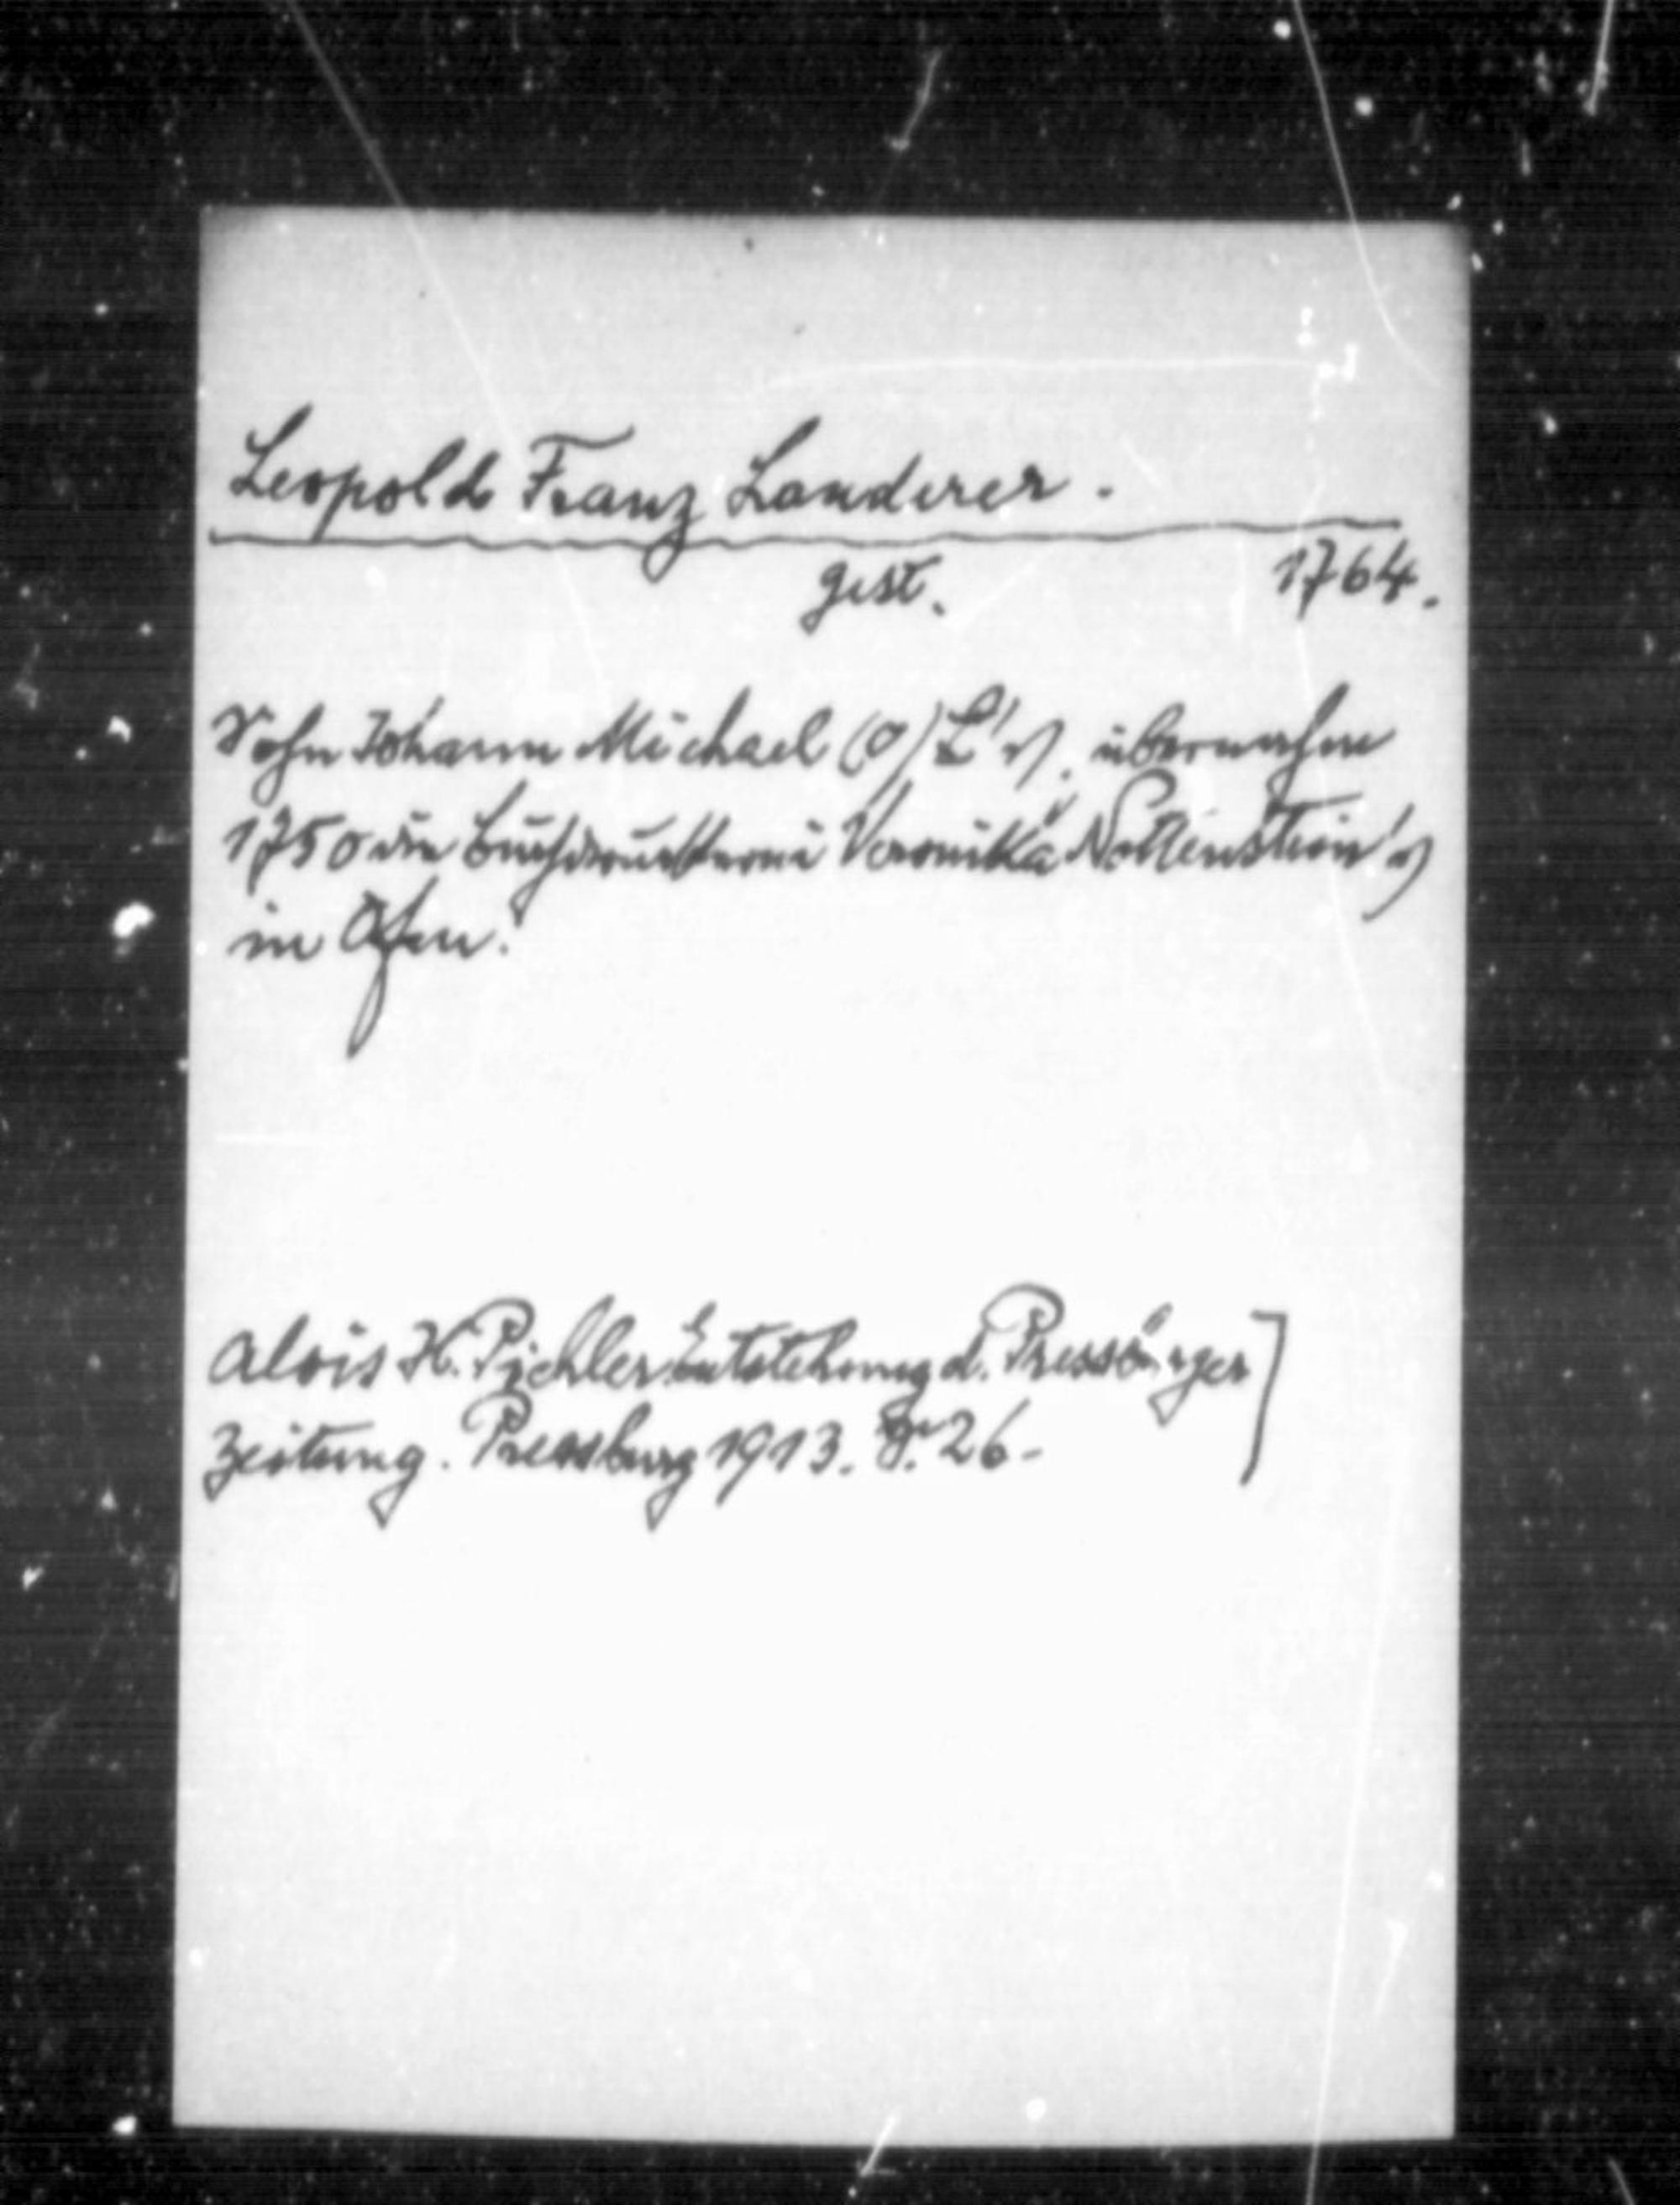 Leopold Franz Landerer.
gest. 1764.
Sohn Johann Michael (o) L's. übernahm
1750 die Buchdruckerei Veronika Nottenstein's
in Ofen.
Alois H. Pichler Entstehung d. Pressburger
Zeitung. Pressburg 1913. S. 26.]